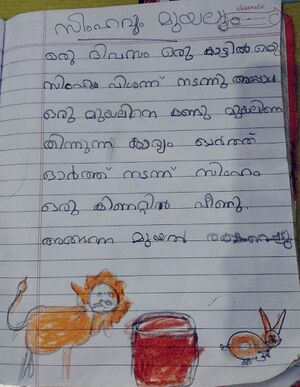 സിംഹവും മുയലും
ഒരു ദിവസം ഒരു കാട്ടിൽ ഒരു
സിംഹം വിശന്ന് നടന്നു അപ്പോൾ
ഒരു മുയലിനെ കണ്ടു മുയലിനെ
തിന്നുന്ന കാര്യം ഓർത്ത്
ഓർത്ത് നടന്ന് സിംഹം
ഒരു കിണറ്റിൽ വീണു.
അങ്ങനെ മുയൽ രക്ഷപ്പെട്ടു